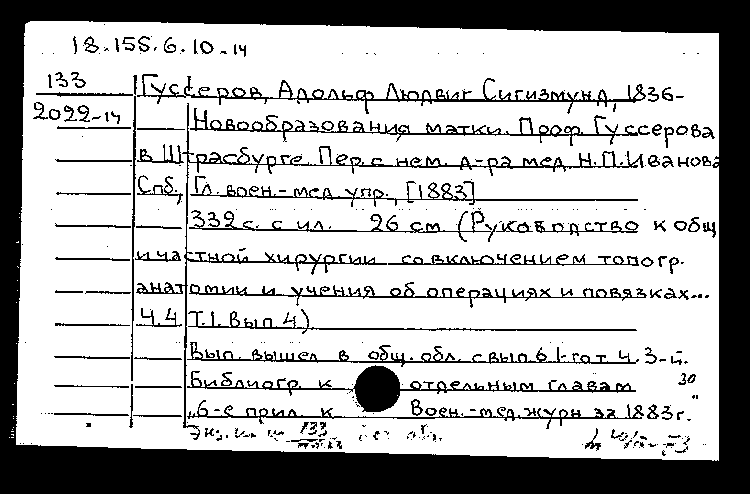 18.155.6.10-14
133
2022-14
Гуссеров, Адольф Людвиг Сигизмунд, 1836-
Новообразования матки. Проф. Гуссерова
в Штрасбурге. Пер. с нем. д-ра мед. Н.П.Иванова
Спб., Гл. воен.-мед. упр., [1883]
332 с. с ил. 26 см (Руководство к общ
и частной хирургии со включением топогр.
анатомии и учения об операциях и повязках...
Ч.4 Т.1. Вып 4)
Вып. вышел в общ. обл. с вып 6 1-го т ч. 3-й.
Библиогр. к отдельным главам
30
"6-е прил. к Воен.-мед. журн за 1883г."
Экз. 133